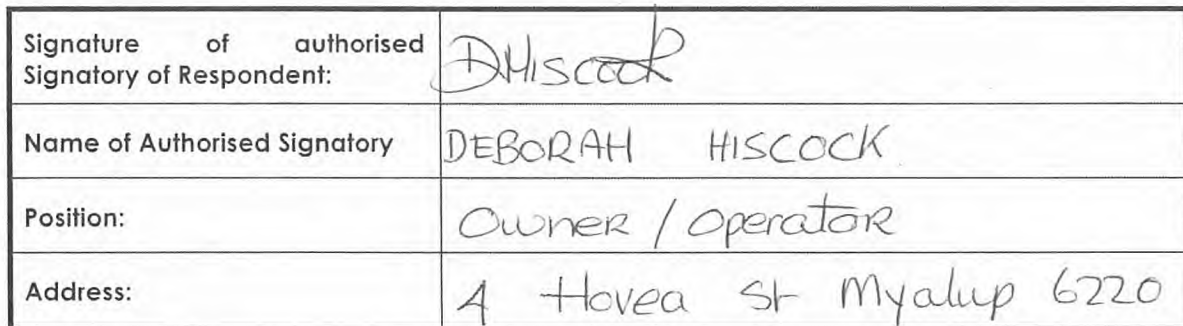 Signature of authorised
Signatory of Respondent:
DHiscock
Name of Authorised Signatory
DEBORAH HISCOCK
Position:
Owner / Operator
Address:
4 Hovea St Myalup 6220